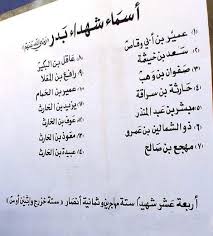 أسماء شهداء بدر
(١) عمير بن أبي وقاص
(٢) سعد بن خيثمة
(٣) صفوان بن وهب
(٤) حارثة بن سراقة
(٥) مبشر بن عبد المنذر
(٦) ذو الشمالين بن عمرو
(٧) مهجع بن صالح
(٨) عاقل بن البكير
(٩) رافع بن المعلا
(١٠) عمير بن الحمام
(١١) يزيد بن الحارث
(١٢) عوف بن الحارث
(١٣) معوذ بن الحارث
(١٤) عبيدة بن الحارث
أربعة عشر شهيدا ستة مهاجرين وثمانية أنصار، ستة خزرج واثنين أوس